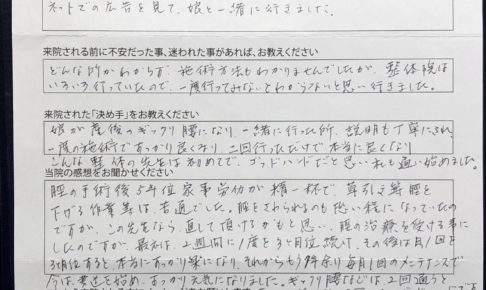 ネットでの広告を見て、娘と一緒に行きました。
来院される前に不安だった事、迷われた事があれば、お教えください
どんな所かわからず、施術方法もわかりませんでしたが、整体院は
いろいろ行っていたので、一度行ってみないとわからないと思い行きました。
来院された「決め手」をお教えください
娘が産後のギックリ腰になり、一緒に行った所、説明も丁寧にされ、
一度の施術ですっかり良くなり、二回行っただけで本当に良くなり
こんな整体の先生は初めてで、ゴッドハンドだと思い私も通い始めました。
当院の感想をお聞かせください
腰の手術後5年位家事労仂が精一杯で、草引き等腰を
下げる作業等は苦痛でした。腰をさわられるのも恐い程になっていたの
ですが、この先生なら、直して頂けるかもと思い、腰の治療を受ける事に
したのですが、最初は、2週間に1度を3ヶ月位続け、その後は月1回を
3ヶ月位すると、本当にすっかり楽になり、それからもう1年余り毎月1回のメンテナンスで
すっかり元気になりました。ぎっくり腰などは、2回通うと